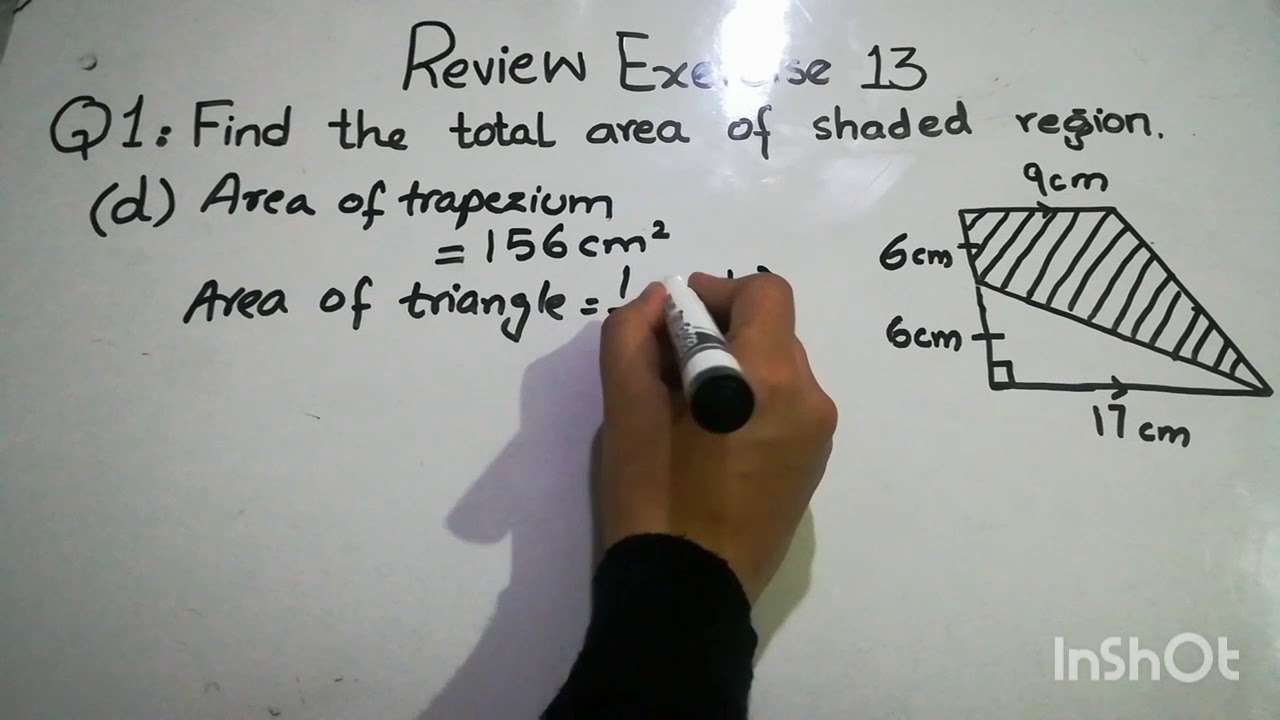 Review Exercise 13
Q1: Find the total area of shaded region.
(d) Area of trapezium
= 156 cm²
Area of triangle = 1
9cm
6cm
6cm
17 cm
InShOt